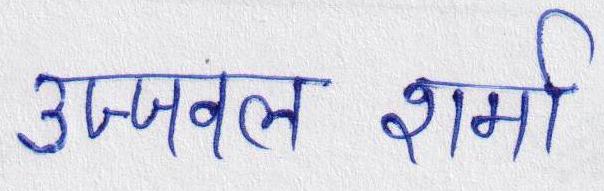 उज्जवल शर्मा